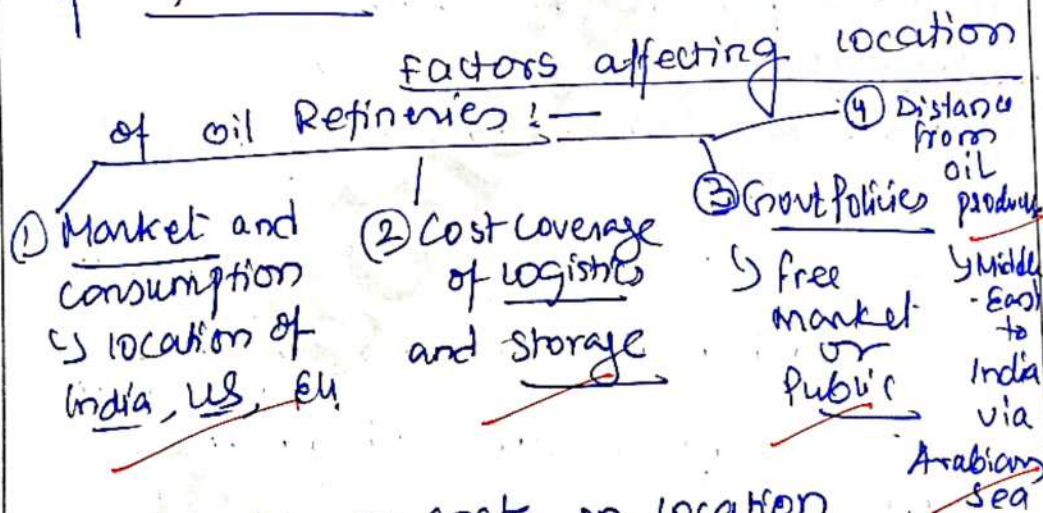 Factors affecting location
of oil Refineries :—
① Market and
consumption
↳ location of
India, US, EU.
② Cost coverage
of logistics
and storage
③ Govt Policies
↳ free
market
or
Public
④ Distance
from
oil
produc
↳ Middle
-East
to
India
via
Arabian
Sea
on location